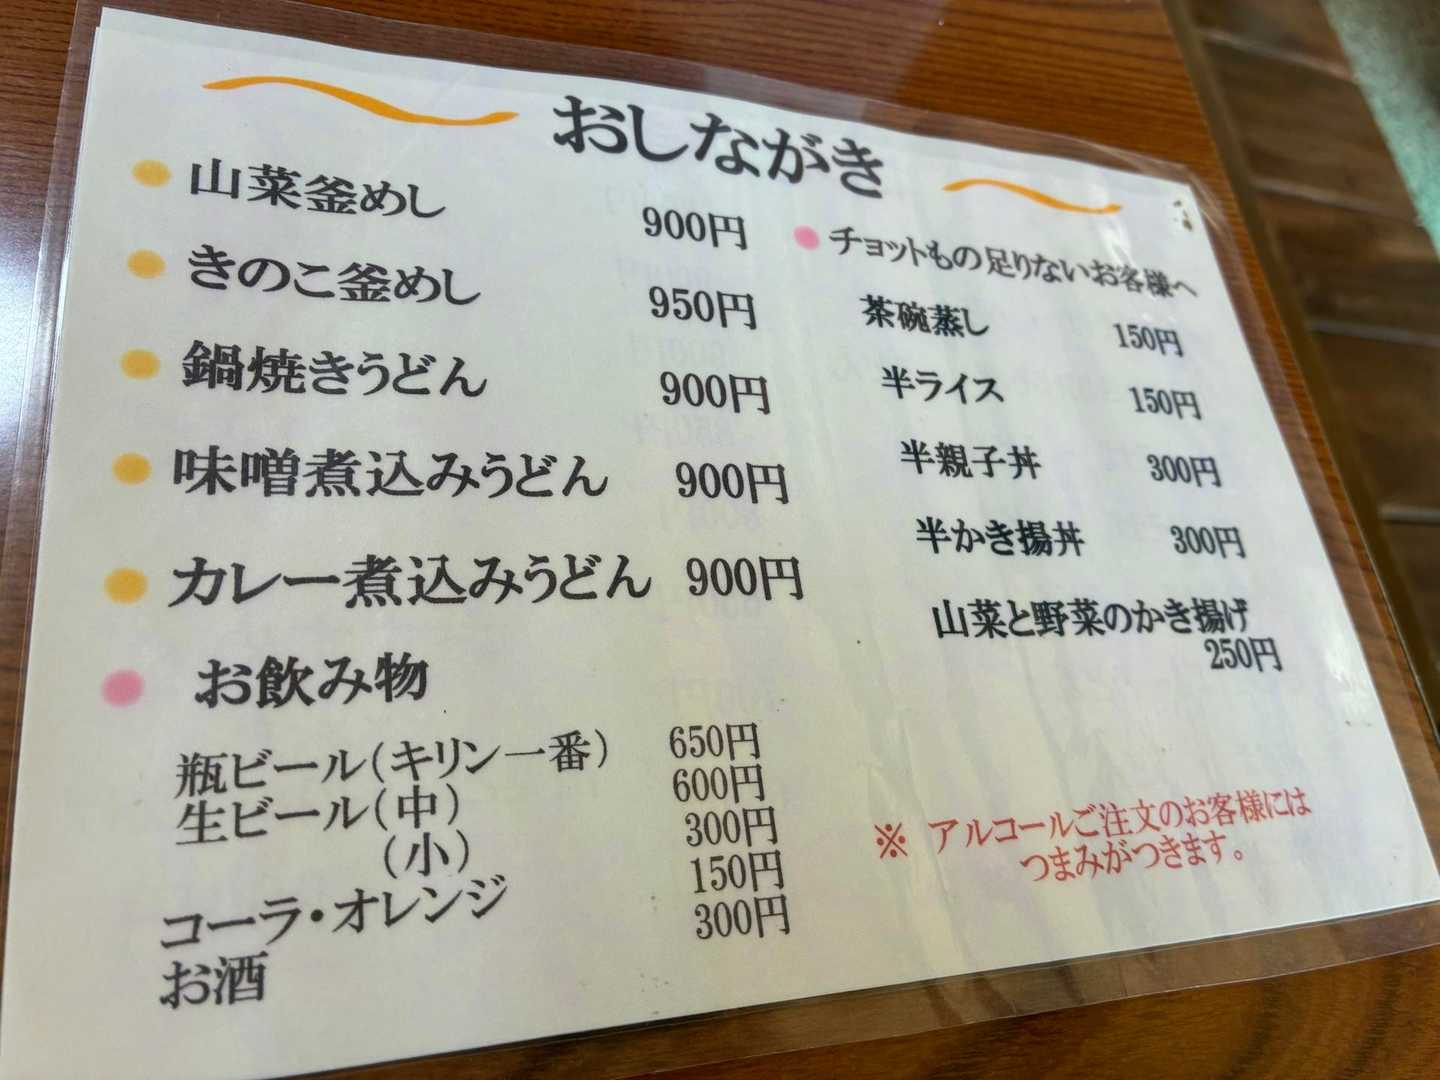 おしながき
山菜釜めし 900円
きのこ釜めし 950円
鍋焼きうどん 900円
味噌煮込みうどん 900円
カレー煮込みうどん 900円
お飲み物
瓶ビール(キリン一番) 650円
生ビール(中) 600円
(小) 300円
コーラ・オレンジ 150円
お酒 300円
チョットもの足りないお客様へ
茶碗蒸し 150円
半ライス 150円
半親子丼 300円
半かき揚丼 300円
山菜と野菜のかき揚げ
250円
※ アルコールご注文のお客様には
つまみがつきます。